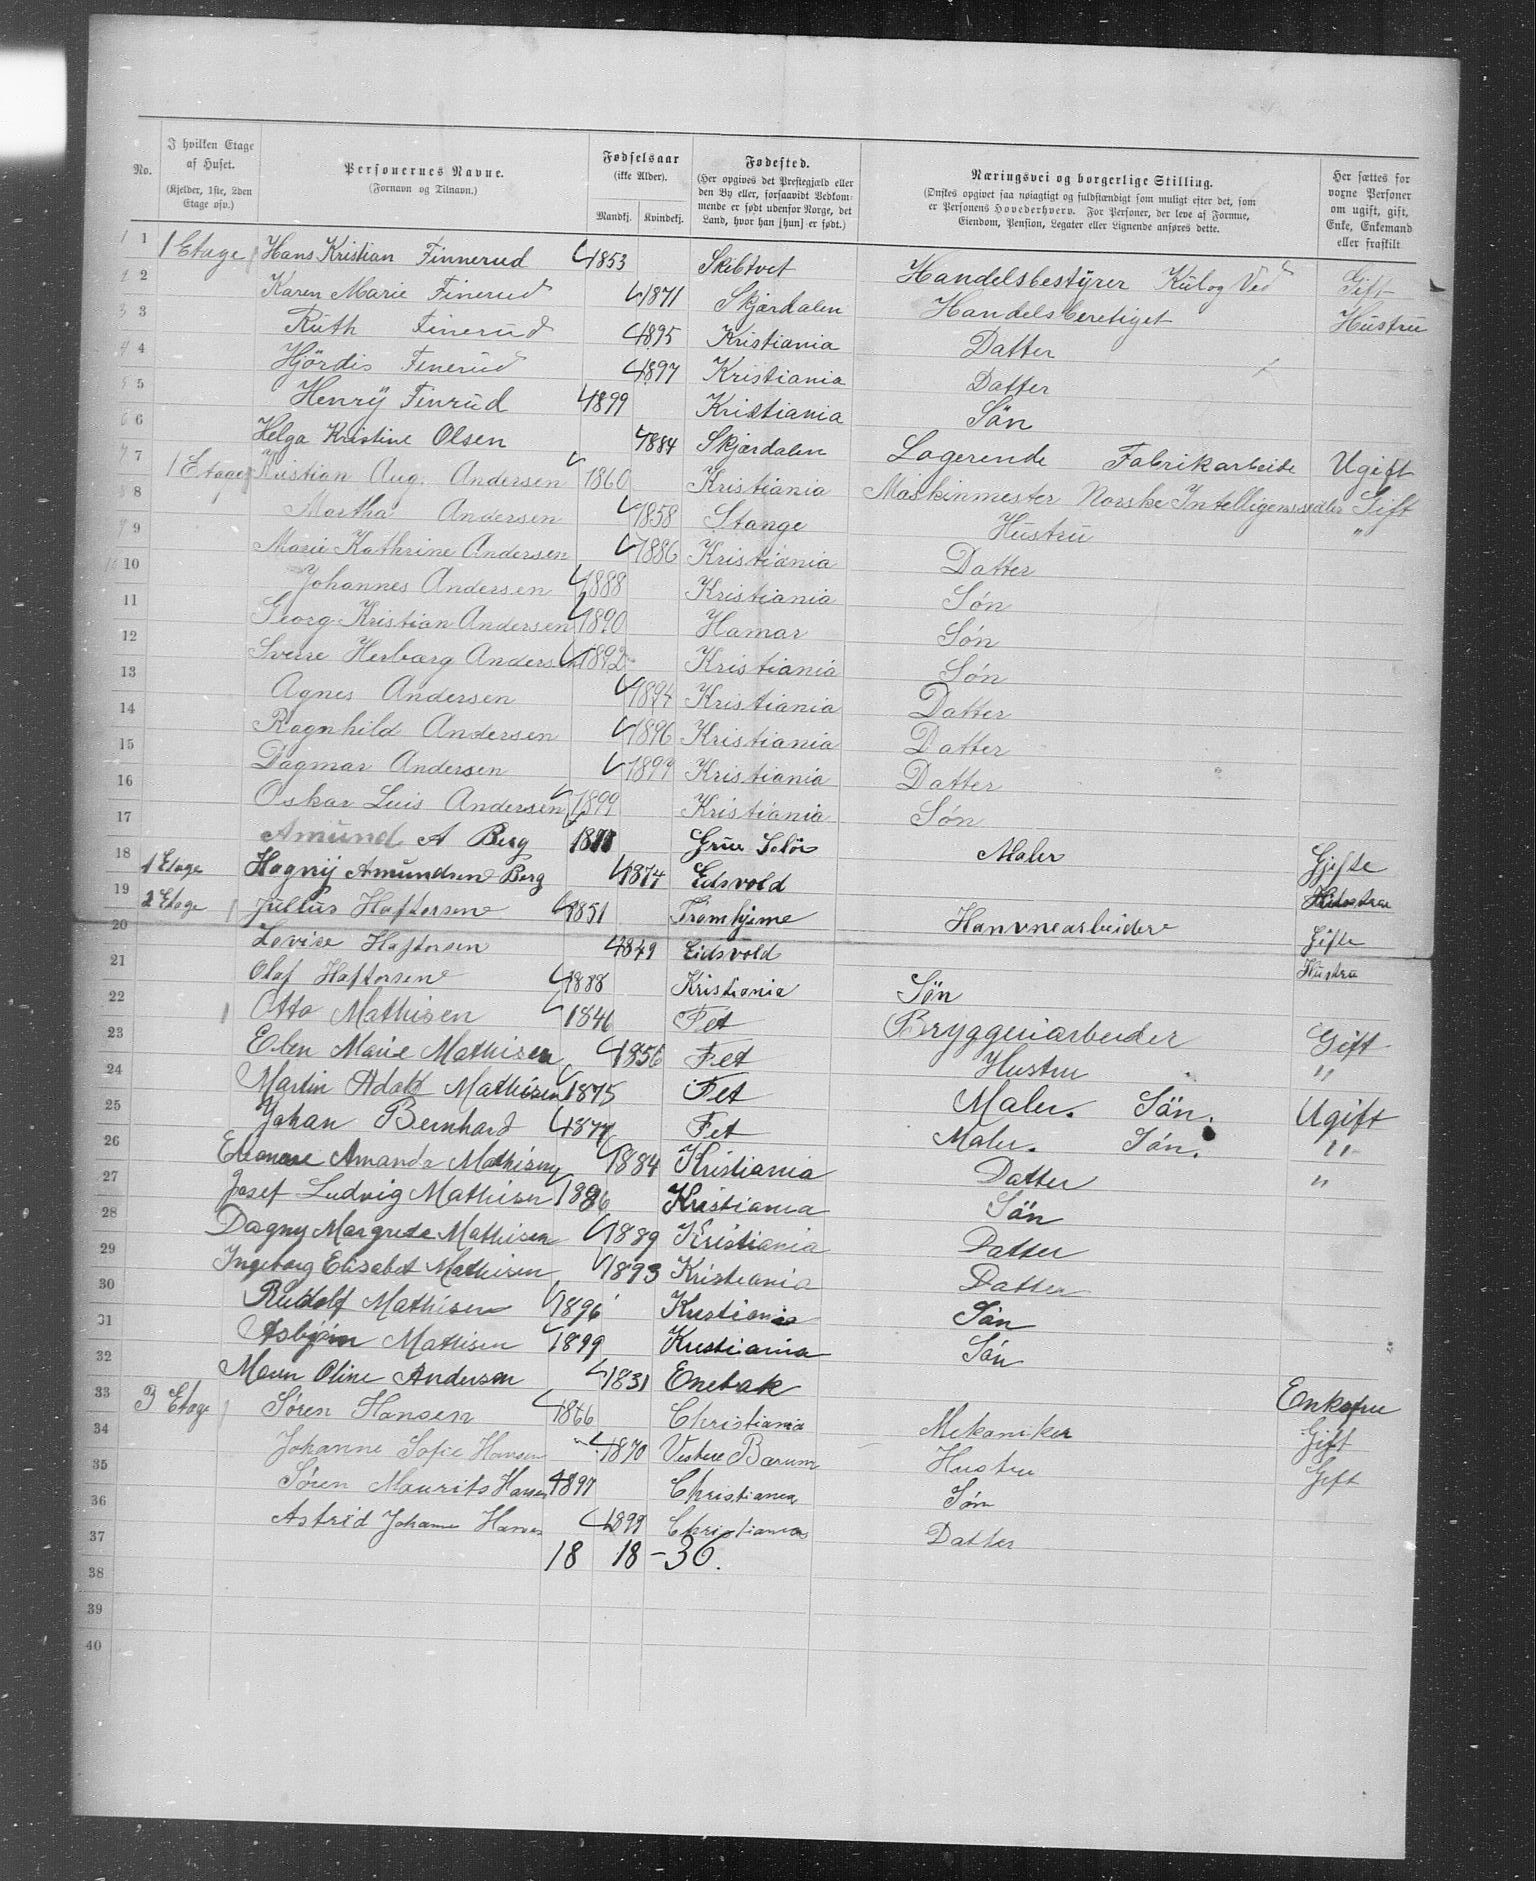 No.
I hvilken Etage af Huset.
(Kjelder, 1ste, 2den Etage osv.)
Personernes Navne.
(Fornavn og Tilnavn.)
Fødselsaar
(ikke Alder).
Mandkj. Kvindekj.
Fødested.
(Her opgives det Prestegjæld eller den By eller, forsaavidt Vedkommende er født udenfor Norge, det Land, hvor han [hun] er født.)
Næringsvei og borgerlige Stilling.
(Ønskes opgivet saa nøiagtigt og fuldstændigt som muligt efter det, som er Personens Hovederhverv. For Personer, der leve af Formue, Eiendom, Pension, Legater eller Lignende anføres dette.
Her sættes for vorne Personer om ugift, gift, Enke, Enkemand eller fraskilt
1 1 Etage Hans Kristian Finnerud 1853 Skibtvet Handelsbestÿrer Kul og Ved Gift
2 Karen Marie Finerud 1871 Skjærdalen Handelsberetiget Hustru
3 Ruth Finerud 1895 Kristiania Datter
4 Hjördis Finerud 1897 Kristiania Datter
5 Henrÿ Finrud 1899 Kristiania Sön
6 Helga Kristine Olsen 1884 Skjærdalen Logerende Fabrikarbeide Ugift
7 1 Etage Kristian Aug. Andersen 1860 Kristiania Maskinmester Norske Intelligenssedler Gift
8 Martha Andersen 1858 Stange Hustru "
9 Marie Kathrine Andersen 1886 Kristiania Datter
10 Johannes Andersen 1888 Kristiania Søn
11 Georg Kristian Andersen 1890 Hamar Søn
12 Sverre Herbarg Andersen 1892 Kristiania Søn
13 Agnes Andersen 1894 Kristiania Datter
14 Ragnhild Andersen 1896 Kristiania Datter
15 Dagmar Andersen 1897 Kristiania Datter
16 Oskar Luis Andersen 1899 Kristiania Søn
17 Amund A Berg Grue Solør Maler Gjefte
18 1 Etage Hagny Amundsen Berg 1874 Eidsvold Hustrue
19 2 Etage Julius Haftorsen 1851 Tromhjeme Havnearbeider Gifte
20 Lovise Haftorsen 1849 Eidsvold Hustru
21 Olaf Haftorsen 1888 Kristiania Søn
22 Otto Mathisen 1846 Fet Bryggeriarbeider Gift
23 Elen Marie Mathisen 1856 Fet Hustru "
24 Martin Adolf Mathisen 1875 Fet Maler. Sön. Ugift
25 Johan Bernhard 1877 Fet Maler. Søn. "
26 Eleonore Amanda Mathisen 1884 Kristiania Datter "
27 Josef Ludvig Mathisen 1886 Kristiania Sön
28 Dagny Margrede Mathisen 1889 Kristiania Datter
29 Ingeborg Elisabet Mathisen 1893 Kristiania Datter
30 Rudolf Mathisen 1896 Kristiania Søn
31 Asbjørn Mathisen 1899 Kristiania Søn
32 Maren Oline Andersen 1831 Enebak Enkefru
33 3 Etage Søren Hansen 1866 Christiania Mekaniker Gift
34 Johanne Sofie Hansen 1870 Vestere Bærum Hustru Gift
35 Søren Maurits Hansen 1897 Christiania Søn
36 Astrid Johanne Hansen 1899 Christiania Datter
37 18 18 – 36.
38
39
40